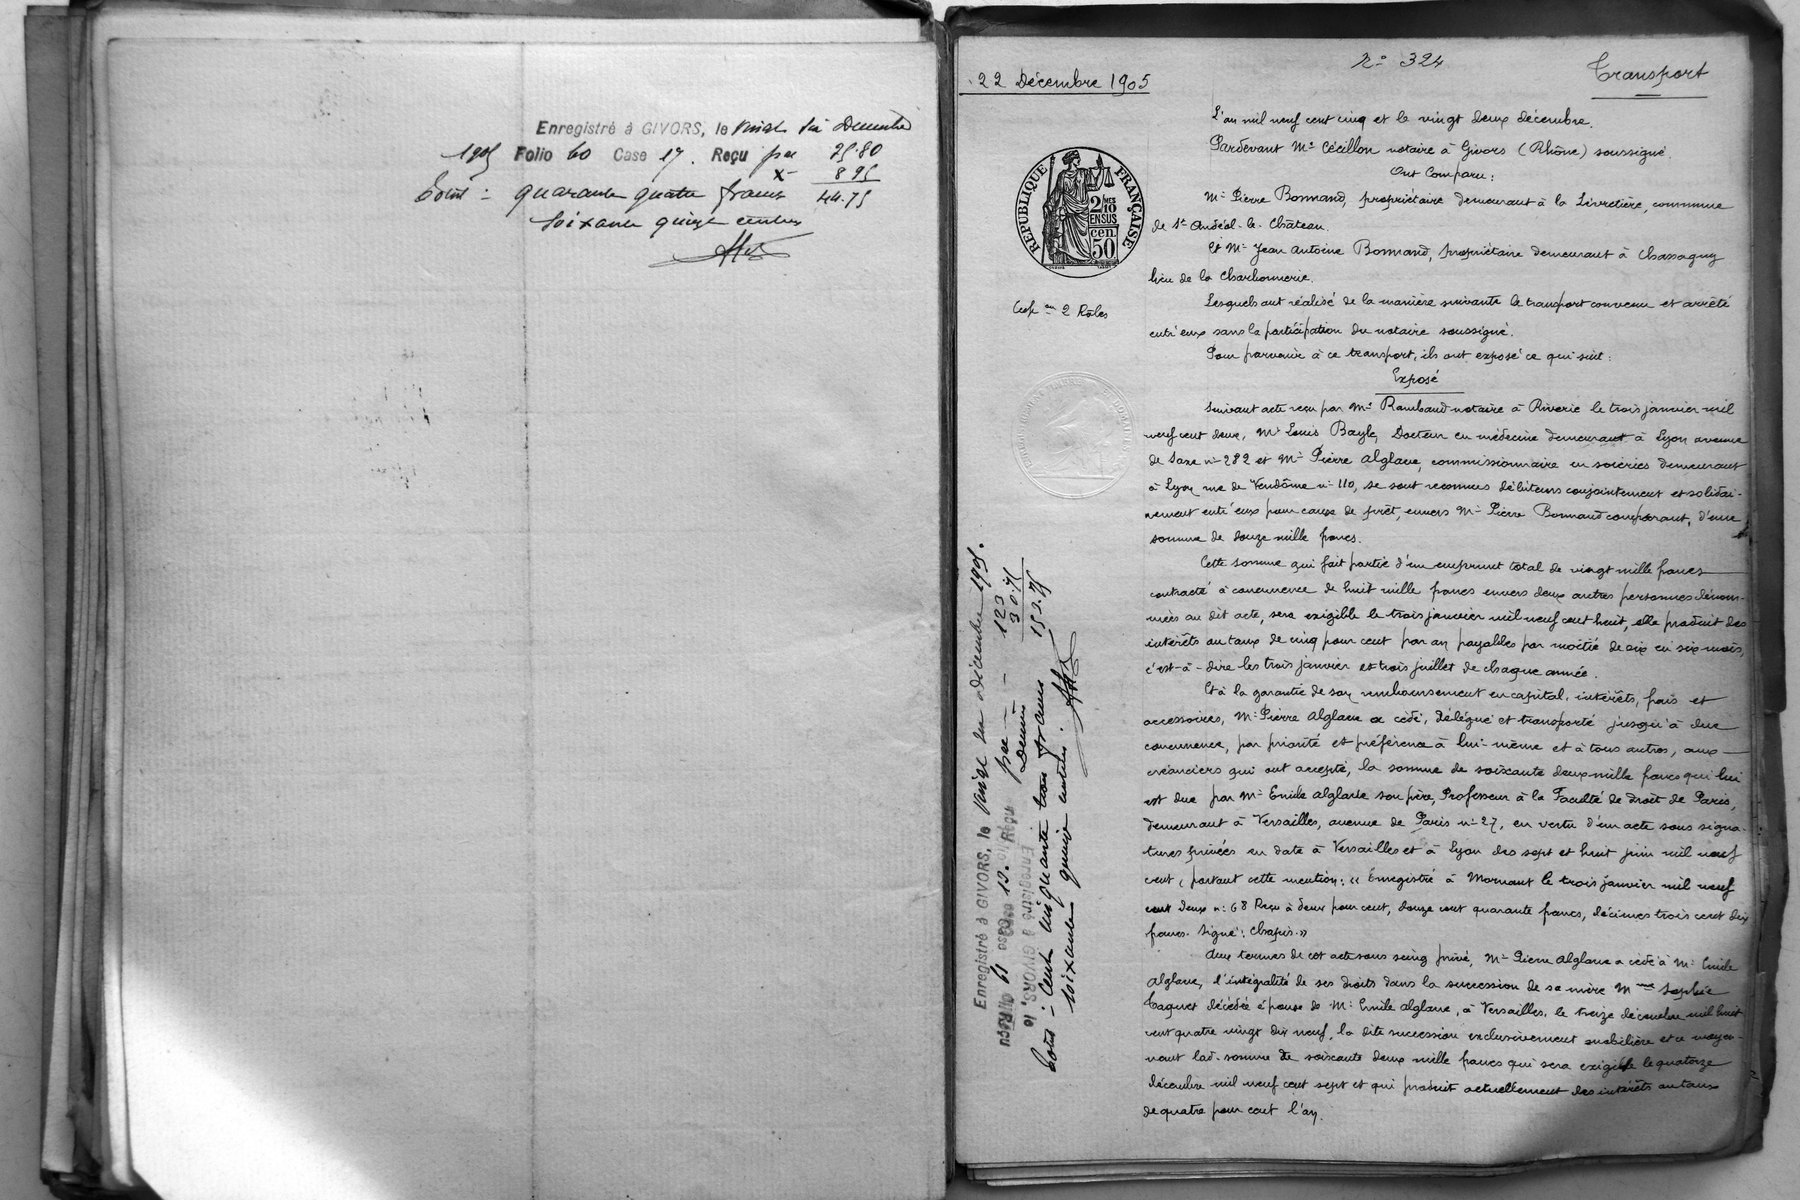 Enregistré à GIVORS, le vingt six Décembre
1905 Folio 60 Case 17. Reçu pse 35.80
8 95
Total : quarante quatre francs 44.75
soixante quinze centimes
22 Décembre 1905
N° 324
Transport
L'an mil neuf cent cinq et le vingt deux décembre.
Pardevant Me Cécillon notaire à Givors (Rhône) soussigné.
Ont Comparu :
Mr Pierre Bonnand, propriétaire demeurant à la Livretière, commune
de St Andéol-le-Château.
Et Mr Jean Antoine Bonnand, propriétaire demeurant à Chassagny
lieu de la Charbonnerie.
Lesquels ont réalisé de la manière suivante le transport convenu et arrêté
entr'eux sans la participation du notaire soussigné.
Pour parvenir à ce transport, ils ont exposé ce qui suit :
Exposé
Suivant acte reçu par Me Rambaud notaire à Riverie le trois janvier mil
neuf cent deux, Mr Louis Bayle, Docteur en médecine demeurant à Lyon avenue
de Saxe n° 282 et Mr Pierre Alglave, commissionnaire en soieries demeurant
à Lyon rue de Vendôme n° 110, se sont reconnus débiteurs conjointement et solidai-
rement entr'eux pour cause de prêt, envers Mr Pierre Bonnand comparant, d'une
somme de douze mille francs.
Cette somme qui fait partie d'un emprunt total de vingt mille francs
contracté à concurrence de huit mille francs envers deux autres personnes dénom-
mées au dit acte, sera exigible le trois janvier mil neuf cent huit, elle produit des
intérêts au taux de cinq pour cent par an payables par moitié de six en six mois,
c'est-à-dire les trois janvier et trois juillet de chaque année.
Et à la garantie de son remboursement en capital, intérêts, frais et
accessoires, Mr Pierre Alglave a cédé, délégué et transporté jusqu'à due
concurrence, par priorité et préférence à lui-même et à tous autres, aux
créanciers qui ont accepté, la somme de soixante deux mille francs qui lui
est due par Mr Emile Alglave son père, Professeur à la Faculté de droit de Paris,
demeurant à Versailles, avenue de Paris n° 27, en vertu d'un acte sous signa-
tures privées en date à Versailles et à Lyon des sept et huit juin mil neuf
cent, portant cette mention : « Enregistré à Mornant le trois janvier mil neuf
cent deux n° 68 Reçu à deux pour cent, douze cent quarante francs, décimes trois cent dix
francs. Signé : Chapis. »
Aux termes de cet acte sous seing privé, Mr Pierre Alglave a cédé à Mr Emile
Alglave, l'intégralité de ses droits dans la succession de sa mère Mme Sophie
décédée épouse de Mr Emile Alglave, à Versailles, le treize décembre mil huit
cent quatre vingt dix neuf, la dite succession exclusivement mobilière et ce moyen-
nant lad. somme de soixante deux mille francs qui sera exigible le quatorze
décembre mil neuf cent sept et qui produit actuellement des intérêts au taux
de quatre pour cent l'an.
RÉPUBLIQUE FRANÇAISE
2/10 MES
EN SUS
50 cen.
2 Rôles
Enregistré à GIVORS, le vingt six décembre 1905.
Folio 61 Case 13. Reçu pse 123
Décimes 30.75
Enregistré à GIVORS, le
153.75
Total : Cent cinquante trois francs
soixante quinze centimes.